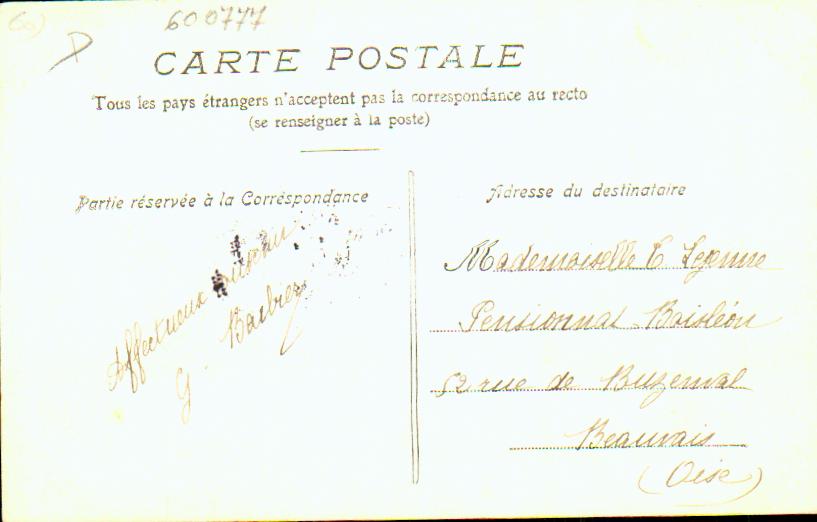 60
600777
D
CARTE POSTALE
Tous les pays étrangers n'acceptent pas la correspondance au recto
(se renseigner à la poste)
Partie réservée à la Correspondance
Affectueux souvenir
G. Barbrez
Adresse du destinataire
Mademoiselle E Lejeune
Pensionnat Boisléon
52 rue de Buzenval
Beauvais
(Oise)